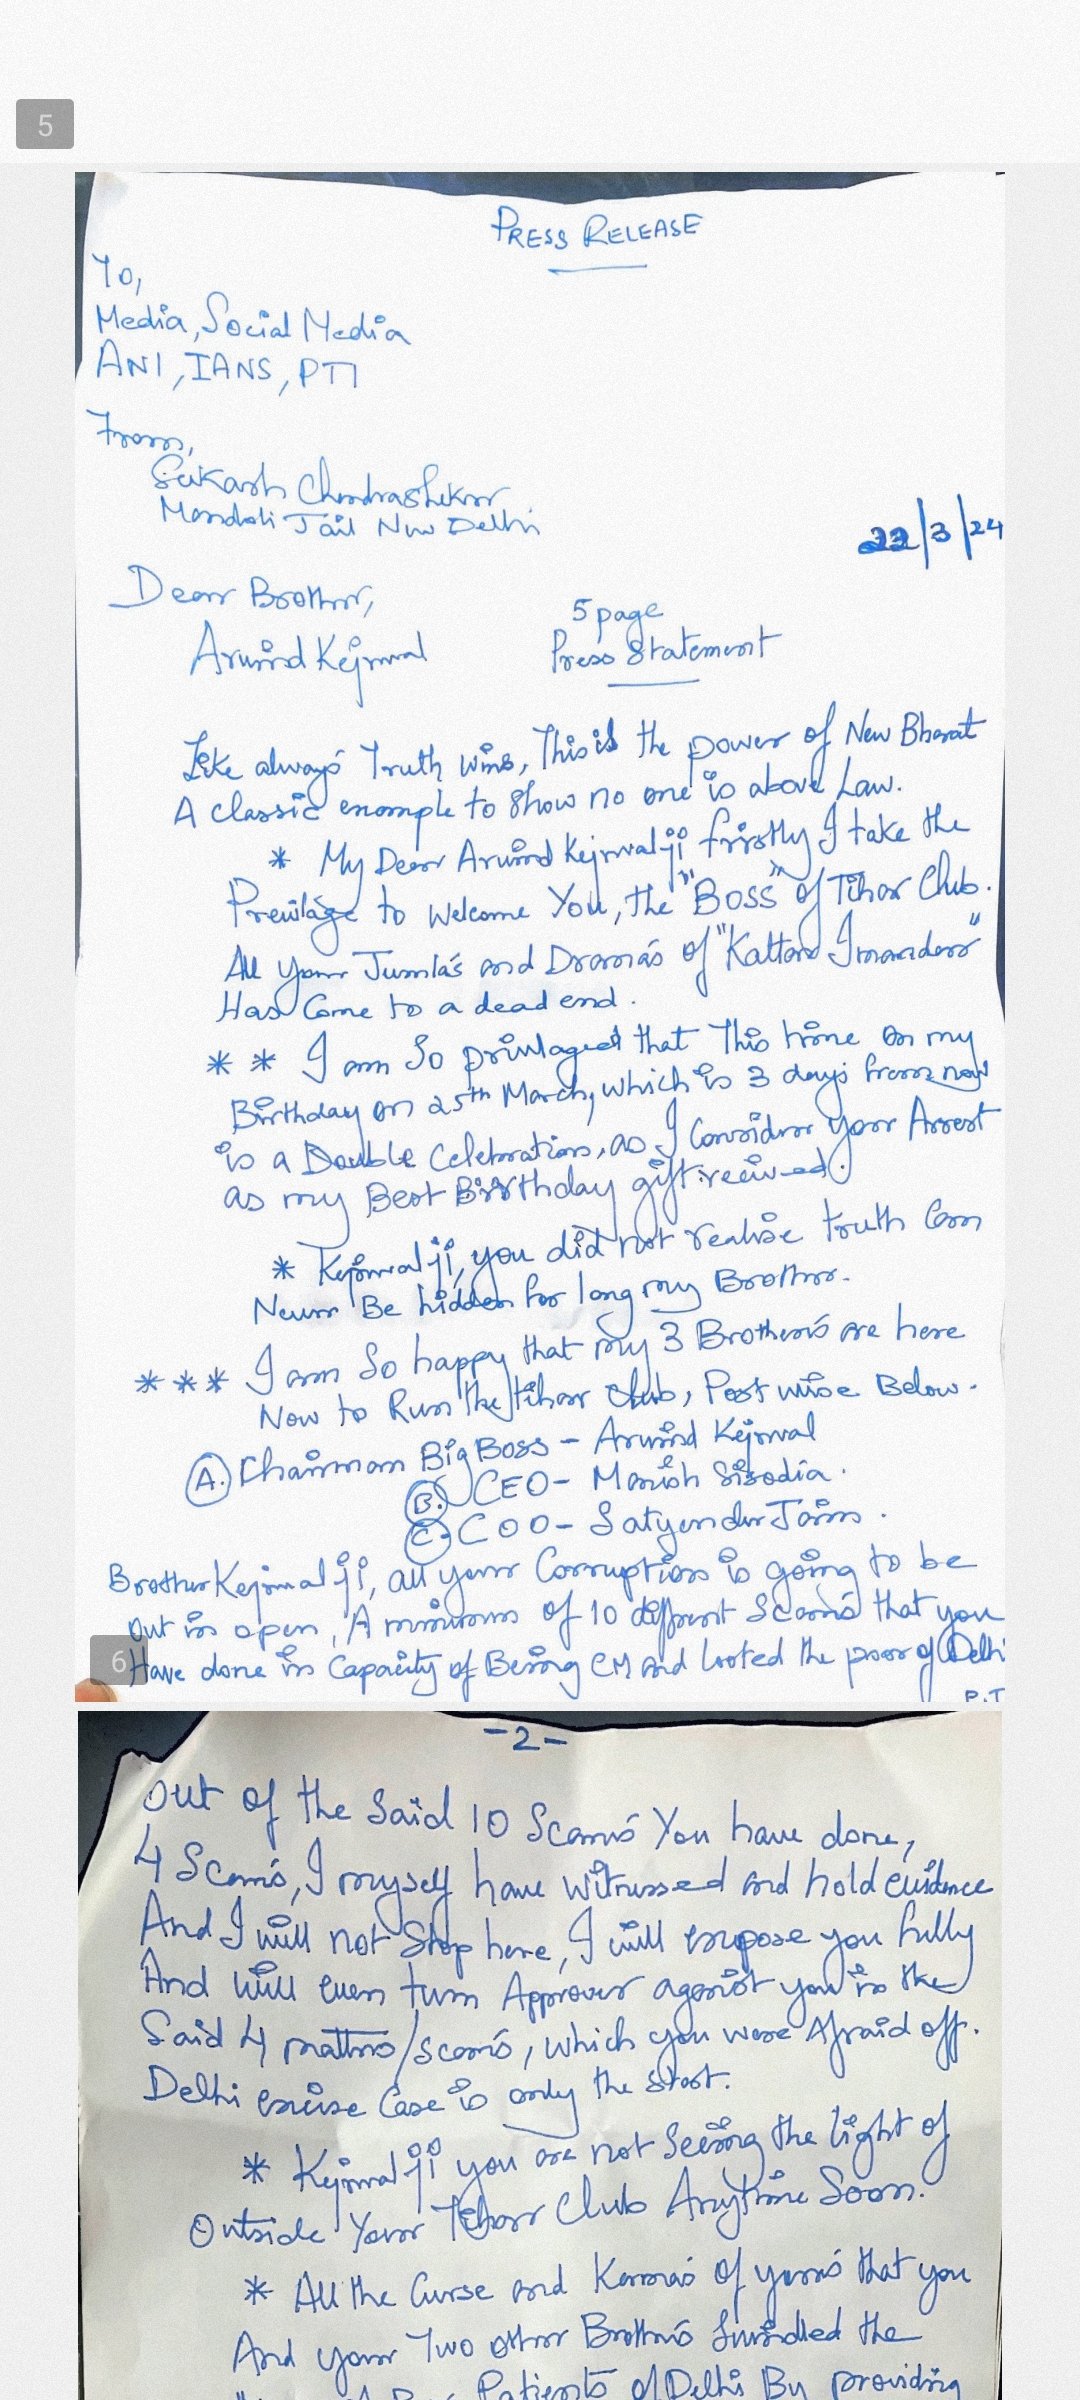 5
PRESS RELEASE
To,
Media, Social Media
ANI, IANS, PTI
From,
Sukash Chandrashekar
Mandoli Jail New Delhi
22/3/24
Dear Brother,
Arvind Kejriwal
5 page
Press Statement
Like always Truth wins, This is the power of New Bharat
A classic example to show no one is above Law.
* My Dear Arvind Kejriwal ji firstly I take the
Previlage to Welcome You, the "BOSS" of Tihar Club.
All your Jumla's and Drama's of "Kattar Imandaar"
Has Come to a dead end.
* * I am So privilaged that This time on my
Birthday on 25th March, which is 3 days from now
is a Double Celebration, as I Consider your Arrest
as my Best Birthday gift received.
* Kejriwal ji, you did not realise truth Can
Never Be hidden for long my Brother.
* * * I am So happy that my 3 Brother's are here
Now to Run the tihar club, Post wise Below.
A. Chairman Big Boss - Arvind Kejriwal
B. CEO - Manish Sisodia.
C. COO - Satyender Jain.
Brother Kejriwal ji, all your Corruption is going to be
out in open, A minimum of 10 different Scams that you
6
Have done in Capacity of Being CM and looted the poor of Delhi
P.T
-2-
Out of the Said 10 Scams You have done,
4 Scams, I myself have witnessed and hold evidence
And I will not Stop here, I will expose you fully
And will even turn Approver against you in the
Said 4 matters/scams, which you were Afraid off.
Delhi excise Case is only the start.
* Kejriwal ji you are not Seeing the light of
Outside Your Tihar Club Anytime Soon.
* All the Curse and Karma's of yours that you
And your Two other Brothers Swindled the
Patients of Delhi By providing